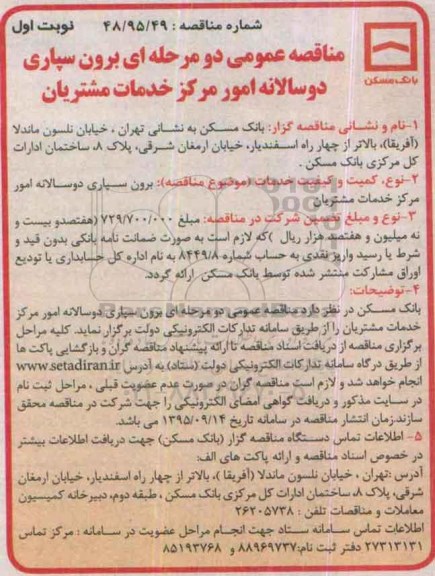 شماره مناقصه : ۴۸/۹۵/۴۹
نوبت اول
بانک مسکن
مناقصه عمومی دو مرحله ای برون سپاری
دوسالانه امور مرکز خدمات مشتریان
۱-نام و نشانی مناقصه گزار: بانک مسکن به نشانی تهران ، خیابان نلسون ماندلا
(آفریقا)، بالاتر از چهار راه اسفندیار، خیابان ارمغان شرقی، پلاک ۸، ساختمان ادارات
کل مرکزی بانک مسکن .
۲-نوع، کمیت و کیفیت خدمات (موضوع مناقصه): برون سپاری دوسالانه امور
مرکز خدمات مشتریان
۳-نوع و مبلغ تضمین شرکت در مناقصه: مبلغ ۷۲۹/۷۰۰/۰۰۰ (هفتصدو بیست و
نه میلیون و هفتصد هزار ریال )که لازم است به صورت ضمانت نامه بانکی بدون قید و
شرط یا رسید واریز نقدی به حساب شماره ۸۴۴۹/۸ به نام اداره کل حسابداری یا تودیع
اوراق مشارکت منتشر شده توسط بانک مسکن ارائه گردد.
۴-توضیحات:
بانک مسکن در نظر دارد مناقصه عمومی دو مرحله ای برون سپاری دوسالانه امور مرکز
خدمات مشتریان را از طریق سامانه تدارکات الکترونیکی دولت برگزار نماید. کلیه مراحل
برگزاری مناقصه از دریافت اسناد مناقصه تا ارائه پیشنهاد مناقصه گران و بازگشایی پاکت ها
از طریق درگاه سامانه تدارکات الکترونیکی دولت (ستاد) به آدرس www.setadiran.ir
انجام خواهد شد و لازم است مناقصه گران در صورت عدم عضویت قبلی ، مراحل ثبت نام
در سایت مذکور و دریافت گواهی امضای الکترونیکی را جهت شرکت در مناقصه محقق
سازند.زمان انتشار مناقصه در سامانه تاریخ ۱۳۹۵/۰۹/۱۴ می باشد.
۵- اطلاعات تماس دستگاه مناقصه گزار (بانک مسکن) جهت دریافت اطلاعات بیشتر
در خصوص اسناد مناقصه و ارائه پاکت های الف:
آدرس :تهران ، خیابان نلسون ماندلا (آفریقا )، بالاتر از چهار راه اسفندیار، خیابان ارمغان
شرقی، پلاک ۸، ساختمان ادارات کل مرکزی بانک مسکن ، طبقه دوم، دبیرخانه کمیسیون
معاملات و مناقصات تلفن : ۲۶۲۰۵۷۳۸
اطلاعات تماس سامانه ستاد جهت انجام مراحل عضویت در سامانه : مرکز تماس
۲۷۳۱۳۱۳۱ دفتر ثبت نام:۸۸۹۶۹۷۳۷ و ۸۵۱۹۳۷۶۸